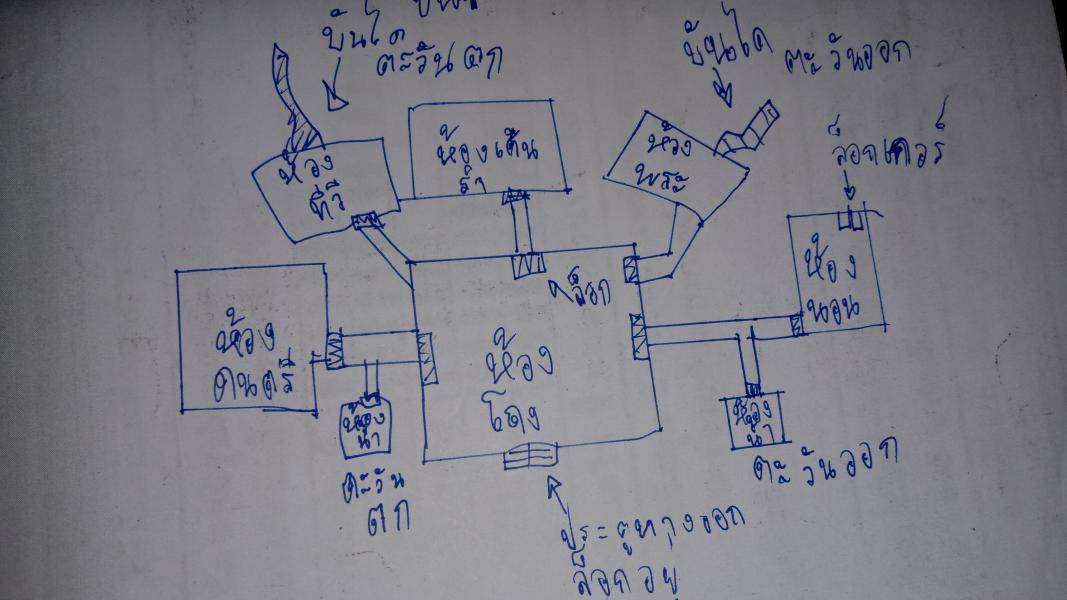 บันได
ตะวันตก
บันได
ตะวันออก
ห้อง
ทีวี
ห้องเต้น
รำ
ห้อง
พระ
ล็อกเกอร์
ห้อง
นอน
ล็อก
ห้อง
ดนตรี
ห้อง
โถง
ห้อง
น้ำ
ตะวัน
ตก
ห้อง
น้ำ
ตะวันออก
ประตูทางออก
ล็อกอยู่